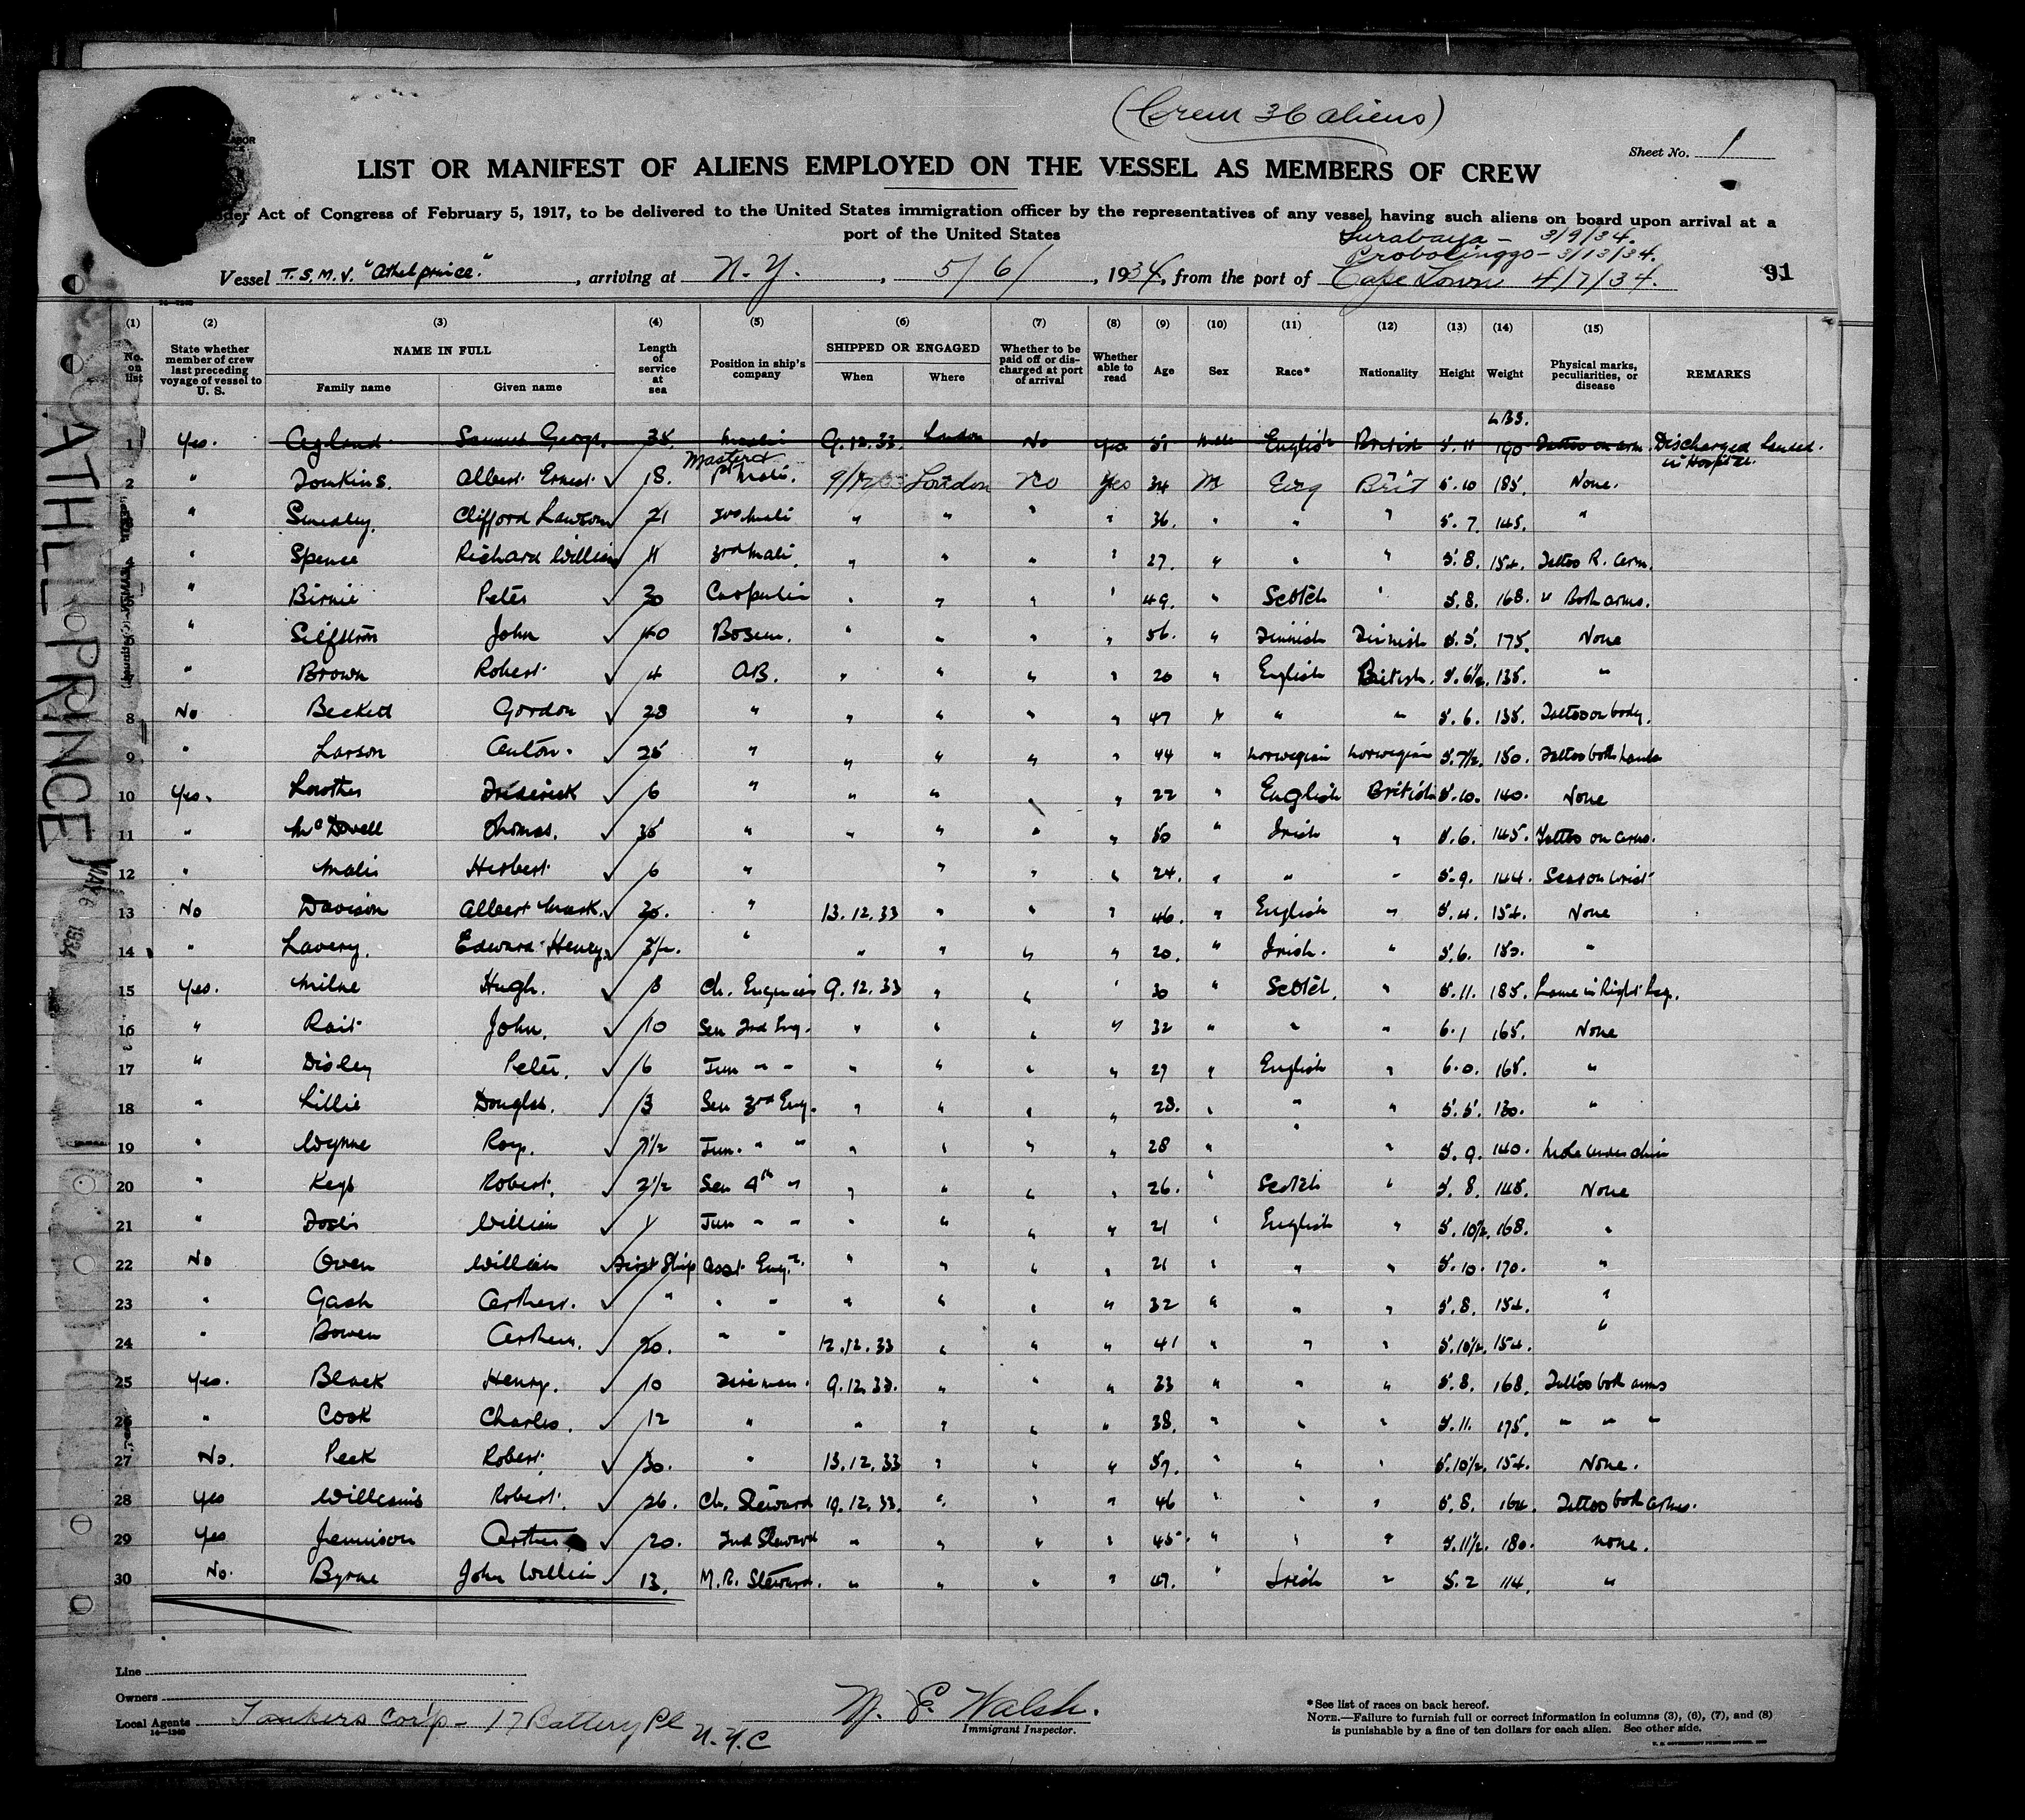 (Crew 36 aliens)
Sheet No. 1
LIST OR MANIFEST OF ALIENS EMPLOYED ON THE VESSEL AS MEMBERS OF CREW
Act of Congress of February 5, 1917, to be delivered to the United States immigration officer by the representatives of any vessel having such aliens on board upon arrival at a
port of the United States
Surabaya - 3/9/34.
Probolinggo - 3/13/34.
Vessel T.S.M.V. "Athelprince." , arriving at N.Y. , 5/6/ , 1934, from the port of Cape Town 4/7/34.
91
ATHELPRINCE
MAY 6 1934
(1) (2) (3) (4) (5) (6) (7) (8) (9) (10) (11) (12) (13) (14) (15)
No. on list
State whether member of crew last preceding voyage of vessel to U. S.
NAME IN FULL
Family name Given name
Length of service at sea
Position in ship's company
SHIPPED OR ENGAGED
When Where
Whether to be paid off or discharged at port of arrival
Whether able to read
Age Sex Race* Nationality Height Weight
Physical marks, peculiarities, or disease
REMARKS
LBS.
1 Yes. Samuel George. 35. London No Yes 51 Male English British 5.11 190 Tattoo on arm. Discharged Landed in Hospital.
Master
2 " Jonkins. Albert Ernest 18. 9/12/33 London No Yes 34 M Eng Brit 5.10 185. None.
3 " Smedley. Clifford Lawson 21 2nd Mate " " " " 36. " " " 5.7. 145. "
4 " Spence Richard William 11 3rd Mate " " " " 27. " " " 5.8. 154. Tattoo R. Arm.
5 " Birnie Peter 30 Carpenter " " " " 49. " Scotch " 5.8. 168. " Both arms.
6 " John 40 Bosun. " " " " 56. " Finnish Finnish 5.5. 175. None
7 " Brown Robert 4 A.B. " " " " 20 " English British. 5.6½. 135. "
8 No Beckett Gordon 28 " " " " " 47 " " " 5.6. 135. Tattoo on body.
9 " Larson Anton. 25 " " " " " 44 " Norwegian Norwegian 5.7½. 150. Tattoo both hands
10 Yes. Lowther Frederick 6 " " " " " 22 " English British 5.10. 140. None
11 " McDowell Thomas. 35 " " " " " 50 " Irish " 5.6. 145. Tattoo on arms.
12 " Herbert 6 " " " " 24. " " " 5.9. 144. Scar on wrist
13 No Davison Albert Mark. 25. " 13.12.33 " " " 46. " English " 5.4. 154. None
14 " Lavery. Edward Henry. 3½. " " " " " 20. " Irish. " 5.6. 150. "
15 Yes. Milne Hugh. 8 Ch. Engineer 9.12.33 " " " 30 " Scotch. " 5.11. 185. Lame in Right Leg.
16 " Rait John. 10 Sen 2nd Eng. " " " " 32 " " " 6.1 165. None
17 " Disley Peter. 6 Jun " " " " " " 29 " English " 6.0. 168. "
18 " Lillie Douglas. 3 Sen 3rd Eng. " " " " 28. " " " 5.5. 130. "
19 " Wynne Roy. 7½ Jun. " " " " " " 28 " " " 5.9. 140. Mole under chin
20 " Keys Robert. 2½ Sen 4th " " " " " 26. " Scotch " 5.8. 148. None
21 " William 1 Jun " " " " " " 21 " English " 5.10½. 168. "
22 No Owen William First Ship Asst. Eng. " " " " 21 " " " 5.10. 170. "
23 " Gash Arthur. " " " " " " " 32 " " " 5.8. 154. "
24 " Bowen Arthur. 20. " " 12.12.33 " " " 41 " " " 5.10½. 154. "
25 Yes. Black Henry. 10 Fireman. 9.12.33. " " " 33 " " " 5.8. 168. Tattoo both arms
26 " Cook Charles. 12 " " " " " 38. " " " 5.11. 175. " " "
27 No. Peek Robert. 30. " 13.12.33 " " " 57. " " " 5.10½. 154. None.
28 Yes Williams Robert. 26. Ch. Steward 19.12.33. " " " 46 " " " 5.8. 164. Tattoo both arms.
29 Yes Jennison Arthur 20. 2nd Steward " " " " 45. " " " 5.11½. 180. none.
30 No. Byrne John William 13. M.R. Steward. " " " " 47. " Irish " 5.2 114. "
Line
Owners
Local Agents Tankers Corp - 17 Battery Pl N.Y.C
M. E. Walsh.
Immigrant Inspector.
*See list of races on back hereof.
NOTE.—Failure to furnish full or correct information in columns (3), (6), (7), and (8)
is punishable by a fine of ten dollars for each alien. See other side.